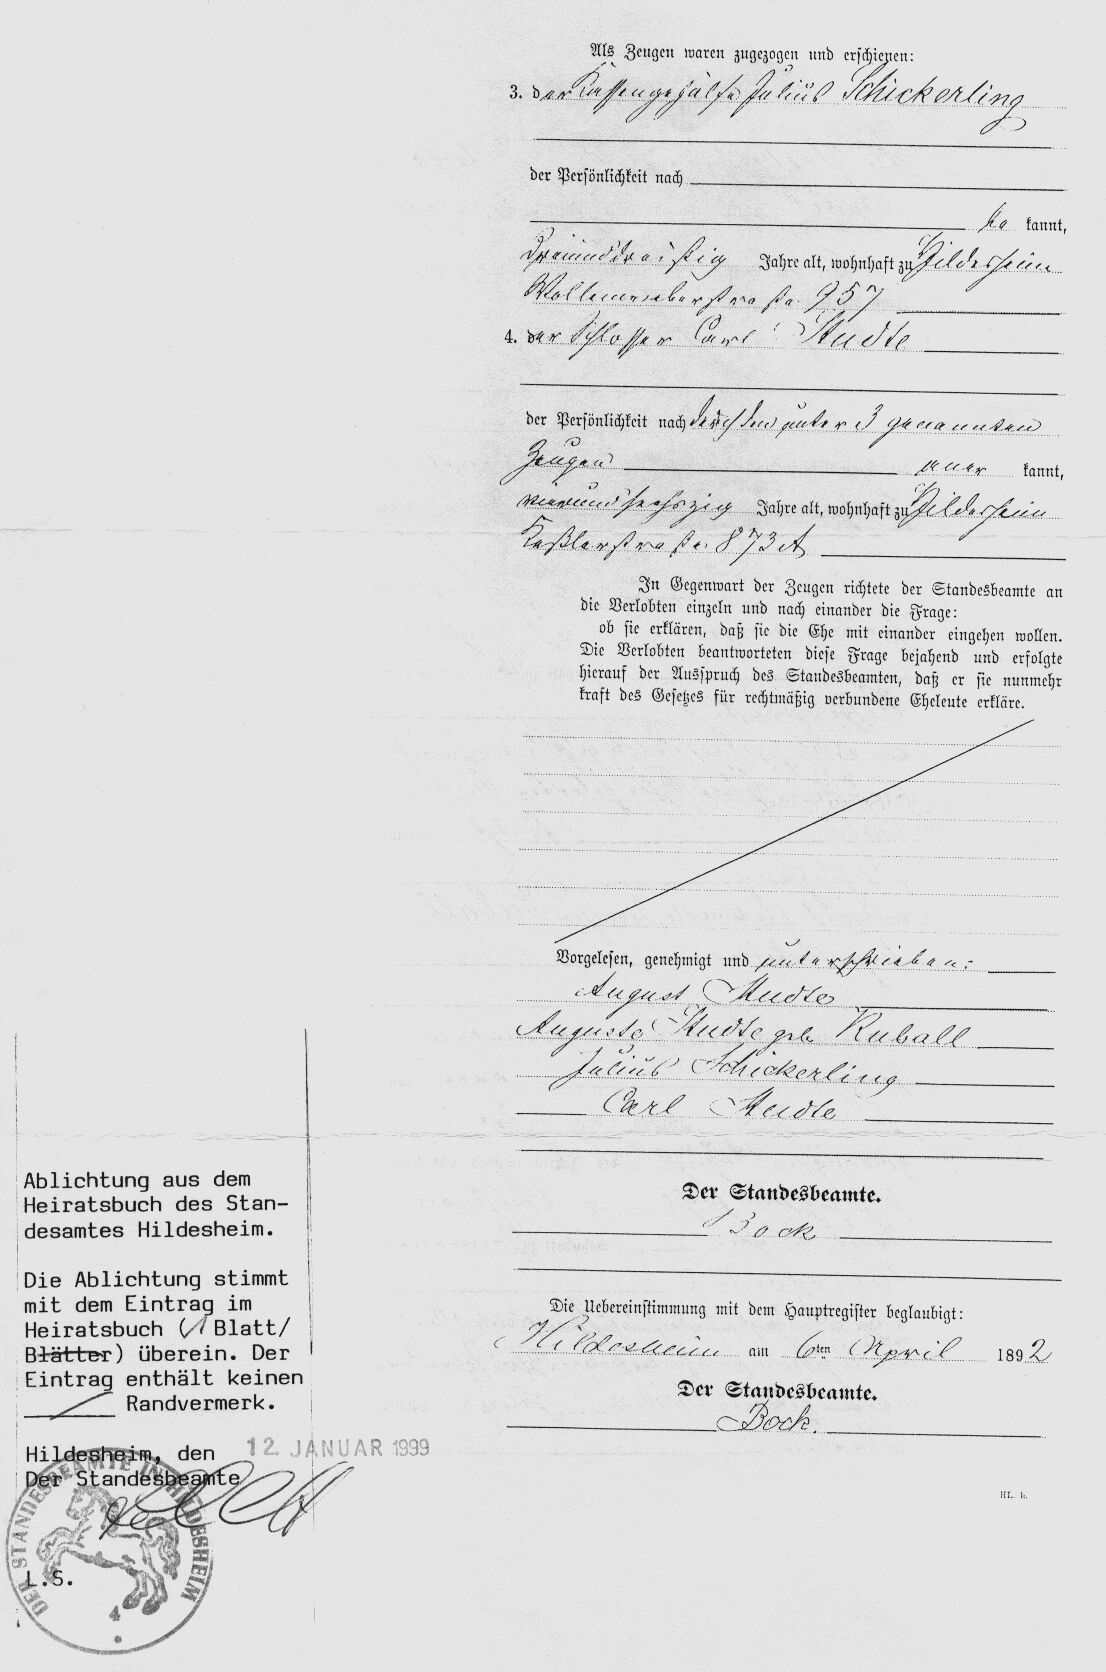 Als Zeugen waren zugezogen und erschienen:
3. der Kassengehülfe Julius Schickerling
der Persönlichkeit nach
be kannt,
dreiunddreißig Jahre alt, wohnhaft zu Hildesheim
Wollenweberstraße 957
4. der Schlosser Carl Studte
der Persönlichkeit nach durch den unter 3 genannten
Zeugen aner kannt,
vierundsechszig Jahre alt, wohnhaft zu Hildesheim
Keßlerstraße 873 A
In Gegenwart der Zeugen richtete der Standesbeamte an
die Verlobten einzeln und nach einander die Frage:
ob sie erklären, daß sie die Ehe mit einander eingehen wollen.
Die Verlobten beantworteten diese Frage bejahend und erfolgte
hierauf der Ausspruch des Standesbeamten, daß er sie nunmehr
kraft des Gesetzes für rechtmäßig verbundene Eheleute erkläre.
Vorgelesen, genehmigt und unterschrieben:
August Studte
Auguste Studte geb. Kuball
Julius Schickerling
Carl Studte
Der Standesbeamte.
Bock
Die Uebereinstimmung mit dem Hauptregister beglaubigt:
Hildesheim am 6ten April 1892
Der Standesbeamte.
Bock.
HL. h.
Ablichtung aus dem
Heiratsbuch des Stan-
desamtes Hildesheim.
Die Ablichtung stimmt
mit dem Eintrag im
Heiratsbuch (1 Blatt/
Blätter) überein. Der
Eintrag enthält keinen
Randvermerk.
Hildesheim, den 12. JANUAR 1999
Der Standesbeamte
L.S.
DER STANDESBEAMTE IN HILDESHEIM
4